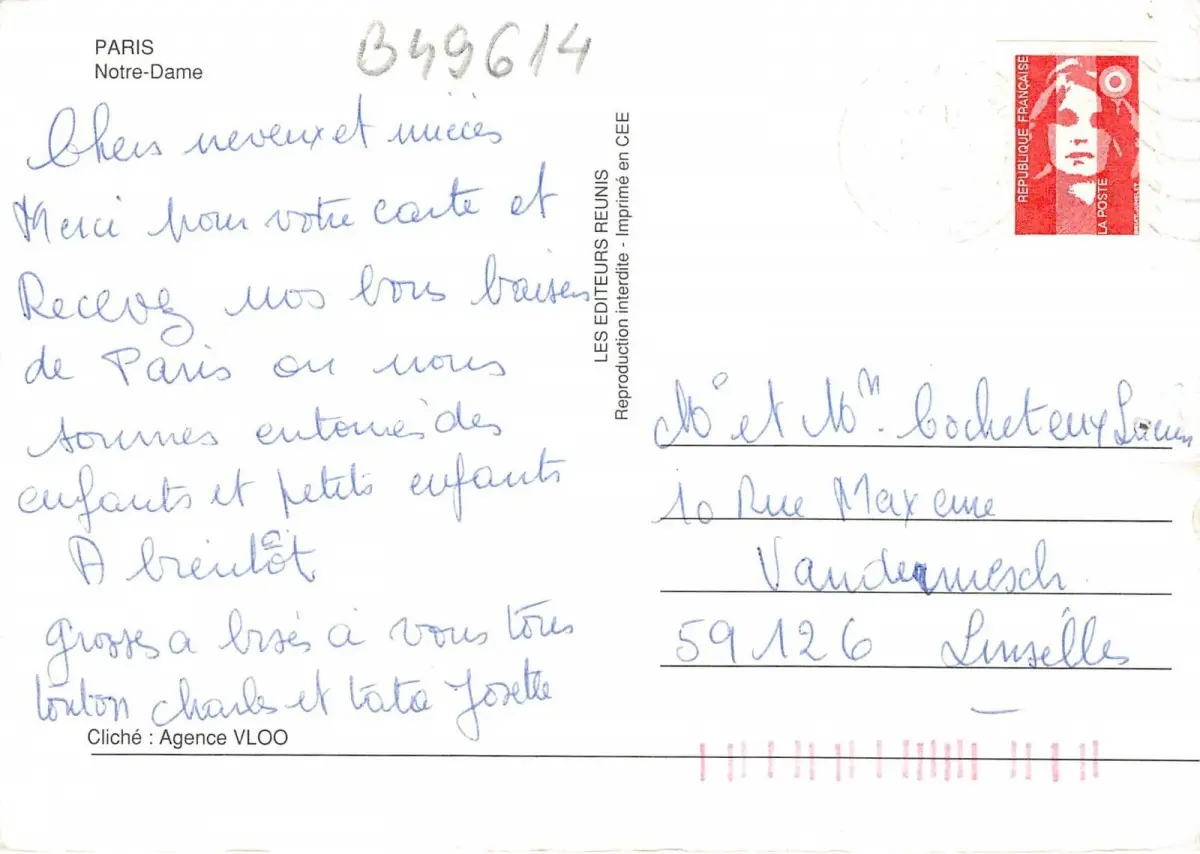 PARIS
Notre-Dame
B49614
Chers neveux et nièces
Merci pour votre carte et
Recevez nos bons baisers
de Paris ou nous
sommes entourés des
enfants et petits enfants
A bientôt
grosses a bisés à vous tous
tonton Charles et tata Josette
Cliché : Agence VLOO
LES EDITEURS REUNIS
Reproduction interdite - Imprimé en CEE
REPUBLIQUE FRANÇAISE
LA POSTE
Mr et Mm Cocheteux Lucien
10 Rue Maxence
Vandermesch
59126 Linselles